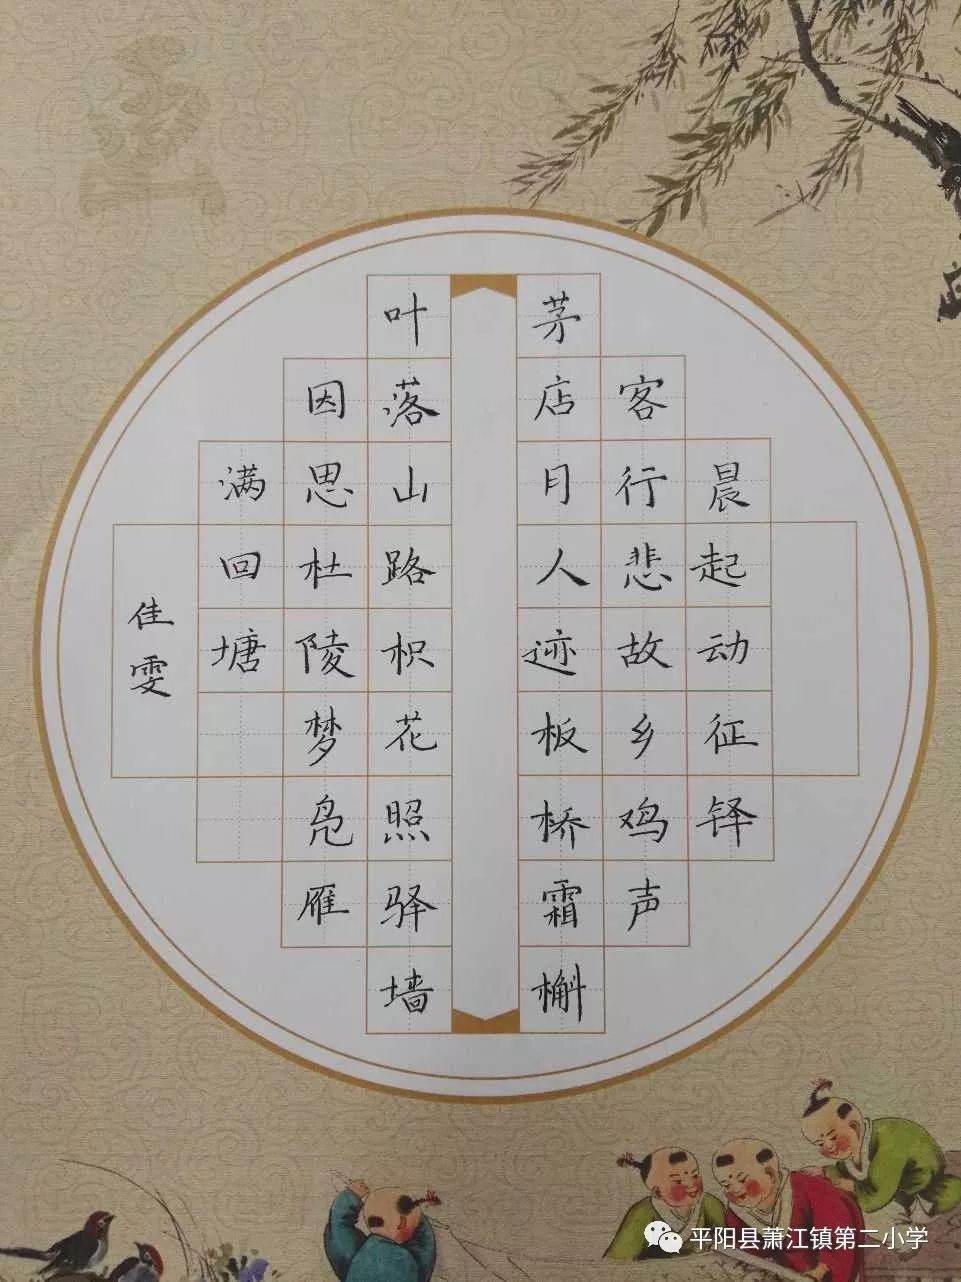 晨起动征铎
客行悲故乡鸡声
茅店月人迹板桥霜槲
叶落山路枳花照驿墙
因思杜陵梦凫雁
满回塘
佳雯
平阳县萧江镇第二小学